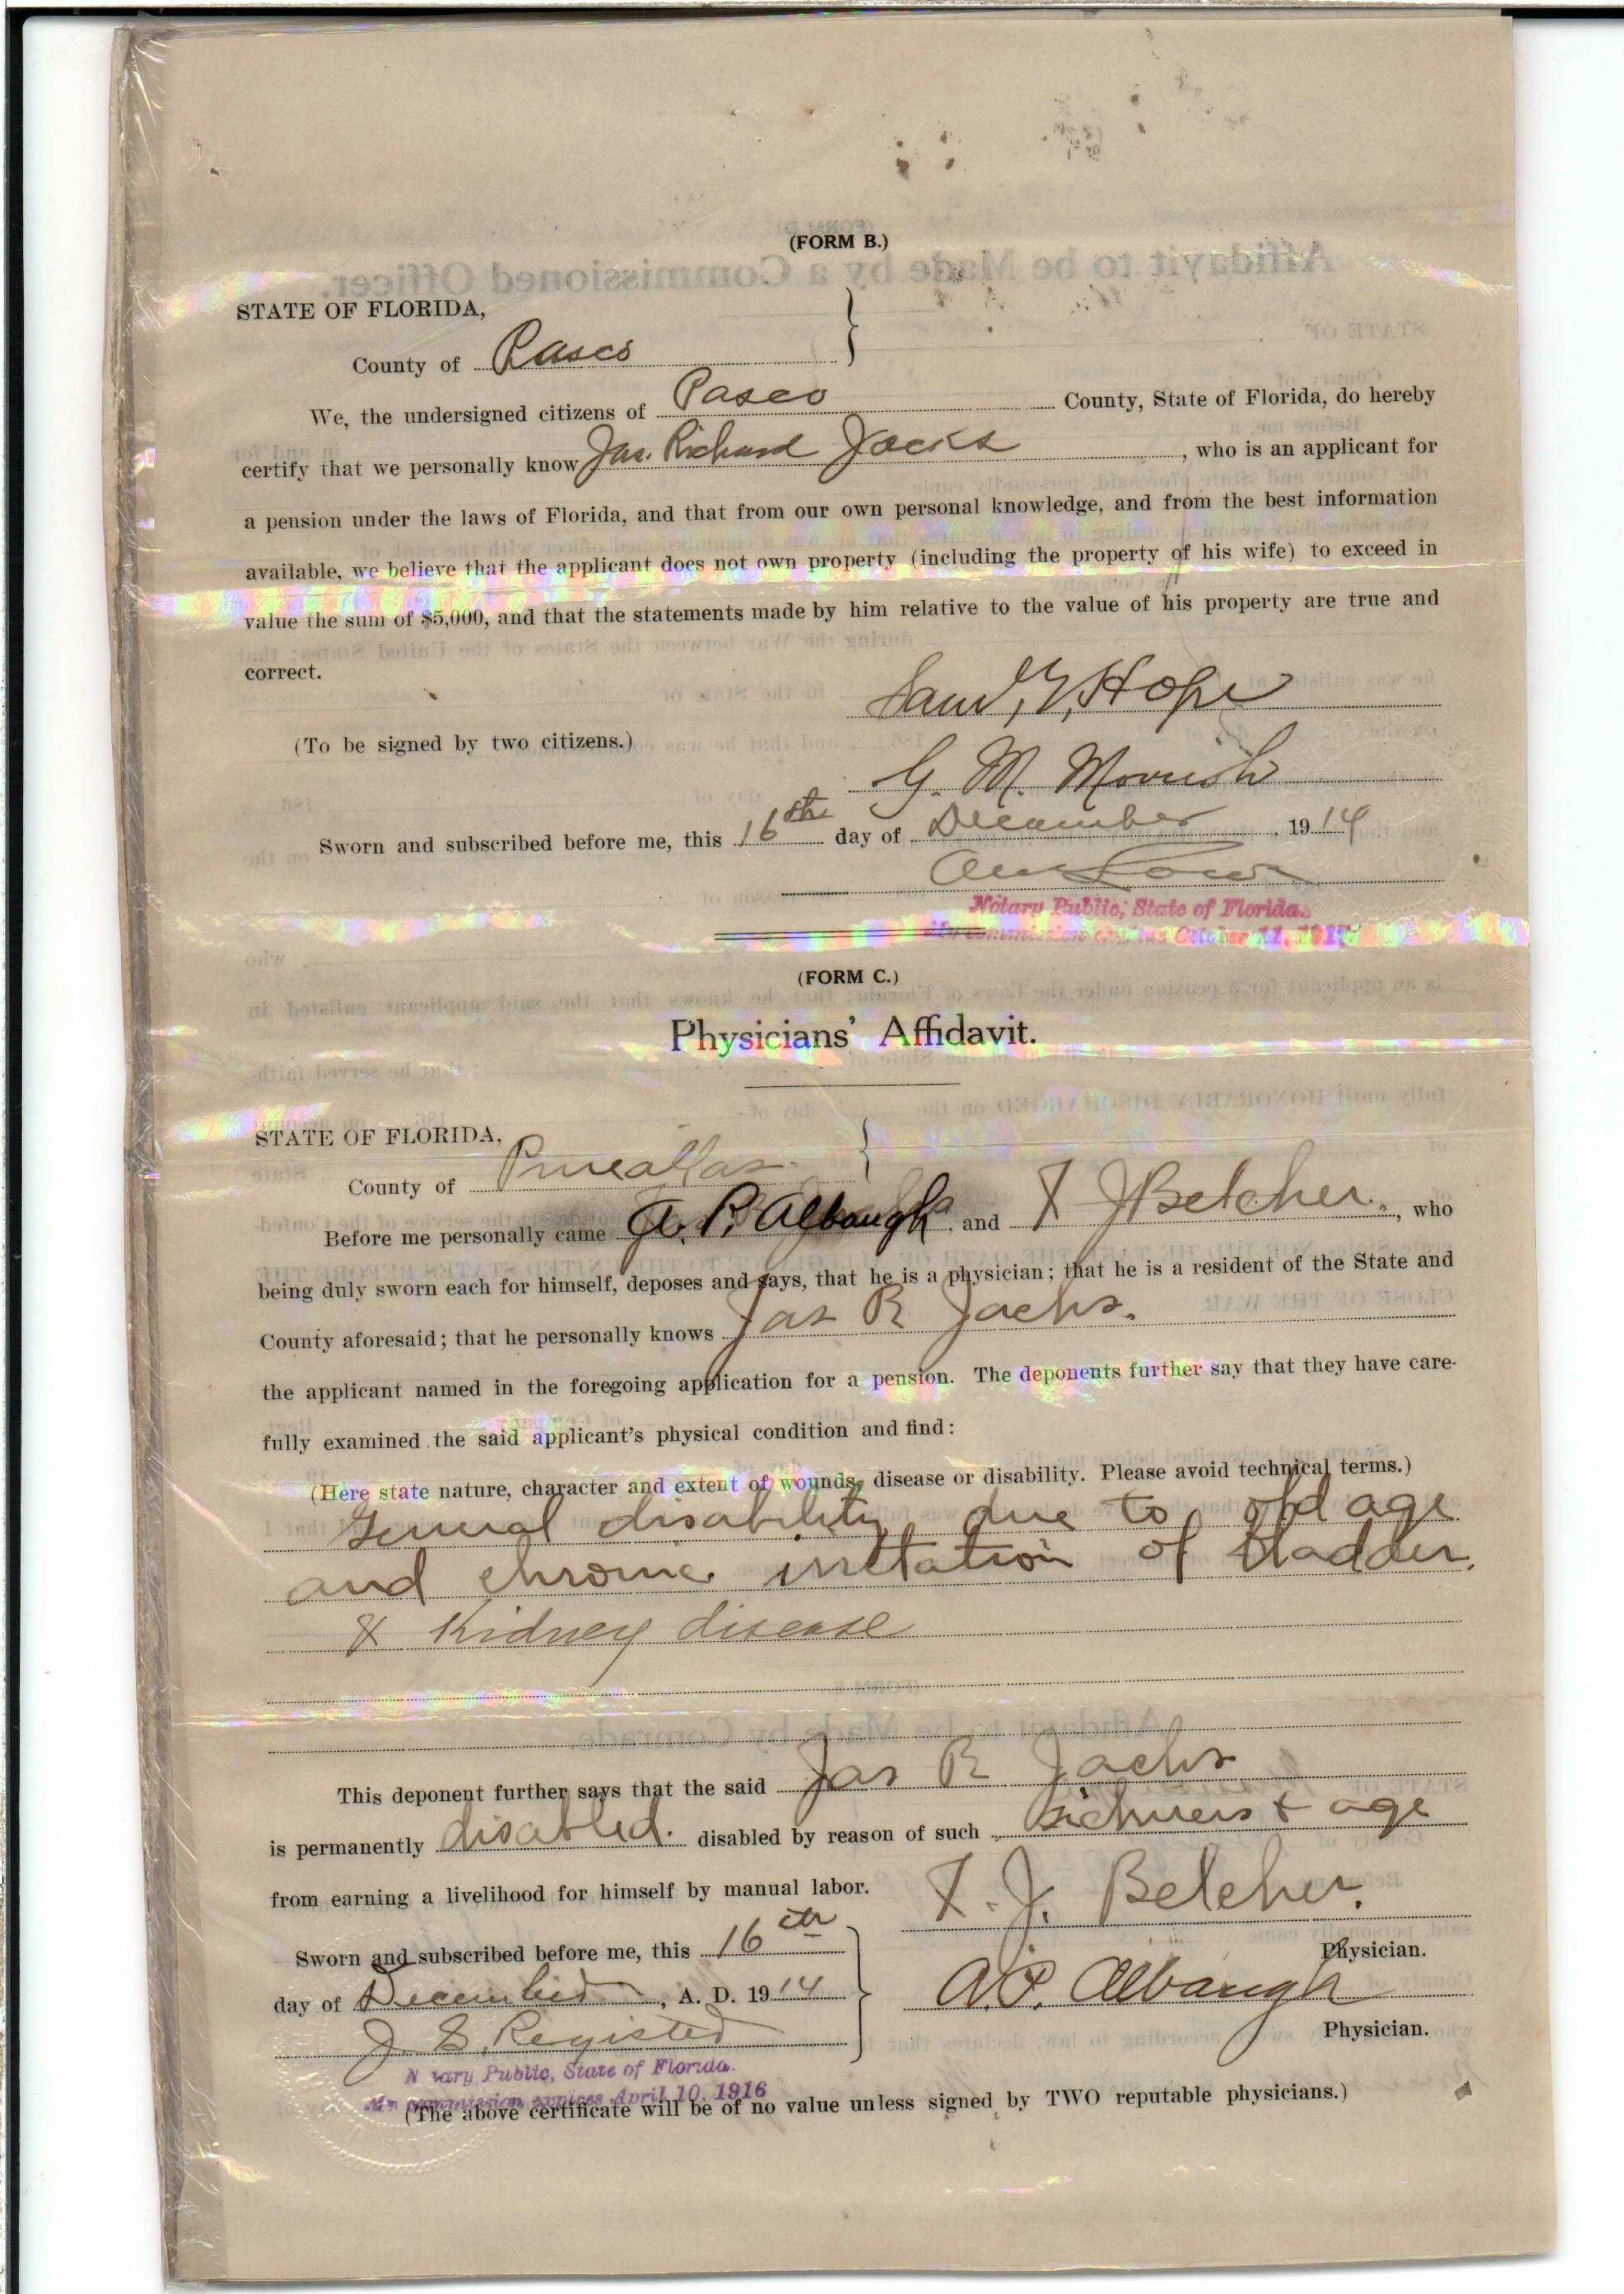 (FORM B.)
STATE OF FLORIDA,
County of Pasco
We, the undersigned citizens of Pasco County, State of Florida, do hereby
certify that we personally know Jas. Richard Jacks, who is an applicant for
a pension under the laws of Florida, and that from our own personal knowledge, and from the best information
available, we believe that the applicant does not own property (including the property of his wife) to exceed in
value the sum of $5,000, and that the statements made by him relative to the value of his property are true and
correct.
Saml, Y, Hope
(To be signed by two citizens.)
G. M.
Sworn and subscribed before me, this 16th day of December, 1914
Notary Public, State of Florida.
My commission expires October 11, 1917
(FORM C.)
Physicians' Affidavit.
STATE OF FLORIDA,
County of Pinellas
Before me personally came A. P. Albaugh and F J Belcher., who
being duly sworn each for himself, deposes and says, that he is a physician; that he is a resident of the State and
County aforesaid; that he personally knows Jas R Jacks.
the applicant named in the foregoing application for a pension. The deponents further say that they have care-
fully examined the said applicant's physical condition and find:
(Here state nature, character and extent of wounds, disease or disability. Please avoid technical terms.)
General disability due to old age
and chronic irritation of bladder.
& Kidney disease
This deponent further says that the said Jas R Jacks
is permanently disabled. disabled by reason of such sickness & age
from earning a livelihood for himself by manual labor.
F. J. Belcher.
Sworn and subscribed before me, this 16th
Physician.
day of December, A. D. 1914
A. P. Albaugh
J. S. Register
Physician.
Notary Public, State of Florida.
My commission expires April 10, 1916
(The above certificate will be of no value unless signed by TWO reputable physicians.)